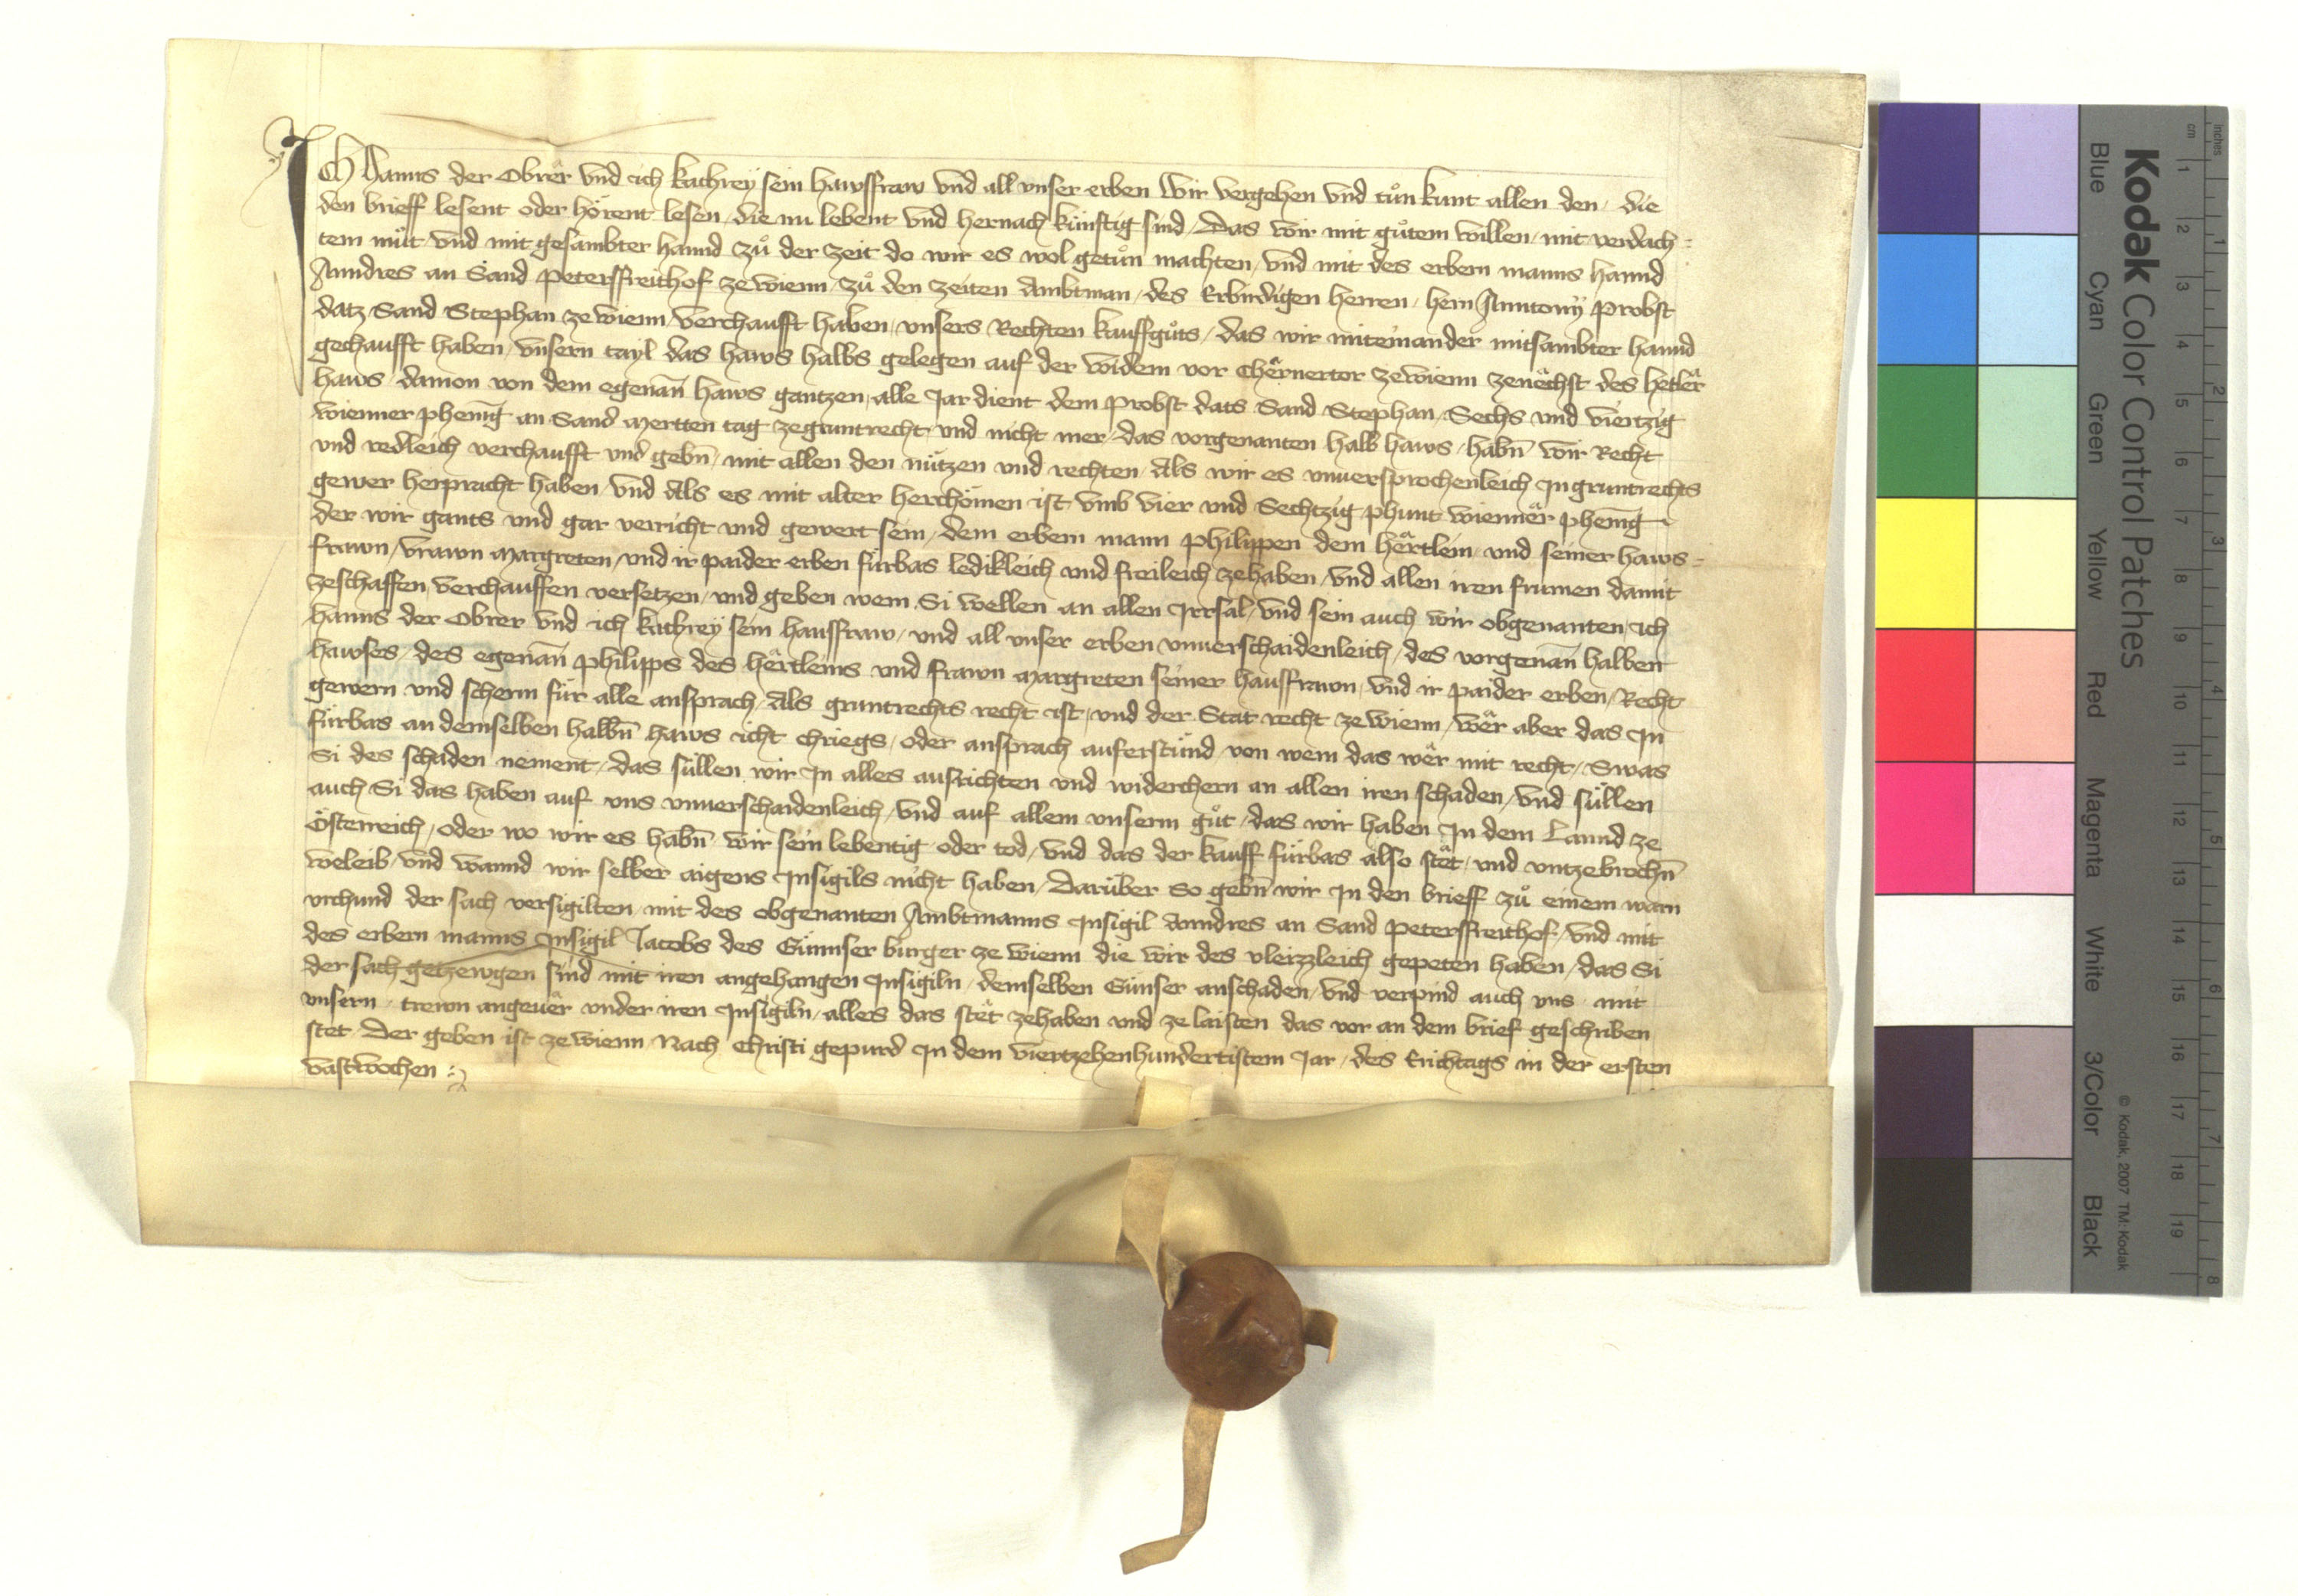 Ich Hanns der Obrër vnd ich kathrey sein hawsfraw vnd all vnser erben Wir vergehen vnd tůn kunt allen den / die
den brieff lesent oder hörent lesen / die nu lebent vnd hernach künftig sind / Das wir mit gůtem willen / mit verdach:
tem můt / vnd mit gesambter hannd zů der zeit do wir es wol getůn machten / vnd mit des erbern manns hannd
Anndres an Sand petersfreithof zewienn / zů den zeiten Ambtman / des Erbirdigen herren / hern Anntony Probst
datz Sand Stephan zewienn / verchaufft haben / vnsers Rechten kauffgůts / das wir miteinander mitsambter hannd
gechaufft haben / vnsern tayl das haws halbs gelegen auf der widem vor Chërnertor zewienn zenëchst des hetlër
haws / dauon von dem egenan̄ haws gantzen / alle Jar dient dem Probst dats Sand Stephan / Sechs vnd viertzig
wienner phenn̄g an Sand Mertten tag zegruntrecht / vnd nicht mer / das vorgenanten halb haws / habn̄ wir Recht
vnd redleich verchaufft vnd gebn̄ / mit allen den nützen vnd rechten / Als wir es vnuersprochenleich Jn gruntrechts
gewer herpracht haben / vnd Als es mit alter herchömen ist / vmb vier vnd Sechtzig phunt wiennër phenn̄g
der wir gants vnd gar verricht vnd gewert sein / dem erbern mann philippen dem hërtlein / vnd seiner haws:
frawn / vrawn Margreten / vnd ir paider erben fürbas ledikleich vnd freileich zehaben / vnd allen iren frumen damit
zeschaffen / verchauffen versetzen / vnd geben wem Si wellen an allen Jrrsal / vnd sein auch wir obgenanten / ich
hanns der Obrer vnd ich kathrey sein hausfraw / vnd all vnser erben vnuerschaidenleich / des vorgenan̄ halben
hawses / des egenan̄ philipps des hërtleins vnd frawn Margreten seiner hausfrawn / vnd ir paider erben / Recht
gewern vnd scherm für alle ansprach / Als gruntrechts recht ist / vnd der Stat recht zewienn / wër aber das Jn
fürbas an demselben halbn̄ haws icht chriegs / oder ansprach auferstünd / von wem das wër mit recht / Swas
Si des schaden nement / das süllen wir Jn alles ausrichten vnd widerchern an allen iren schaden / vnd süllen
auch Si das haben auf vns vnuerschaidenleich / vnd auf allem vnserm gůt / das wir haben Jn dem Lannd ze
Österreich / oder wo wir es habn̄ wir sein lebentig oder tod / vnd das der kauff fürbas also stët / vnd vntzebrochn̄
weleib / vnd wannd wir selber aigens Jnsigils nicht haben / Darüber so gebn̄ wir Jn den brieff zů einem warn
vrchund der sach versigilten / mit des obgenanten Ambtmanns Jnsigil Anndres an Sand petersfreithof / vnd mit
des erbern manns Jnsigil Jacobs des Günnser burger ze wienn die wir des vleizzleich gepeten haben / das Si
der sach getzewgen sind mit iren angehangen Jnsigiln / demselben Günser anschaden / vnd verpind auch vns mit
vnsern trewn angeuër vnder iren Jnsigiln / allers das stët zehaben vnd ze laisten das vor an dem brief geschriben
stet Der geben ist zewienn Nach Christi gepurd Jn dem viertzehenhundertistem Jar / des Erichtags in der ersten
vastwochen :
Kodak Color Control Patches
Blue Cyan Green Yellow Red Magenta White 3/Color Black
© Kodak, 2007 TM: Kodak
cm 1 2 3 4 5 6 7 8 9 10 11 12 13 14 15 16 17 18 19
Inches 1 2 3 4 5 6 7 8